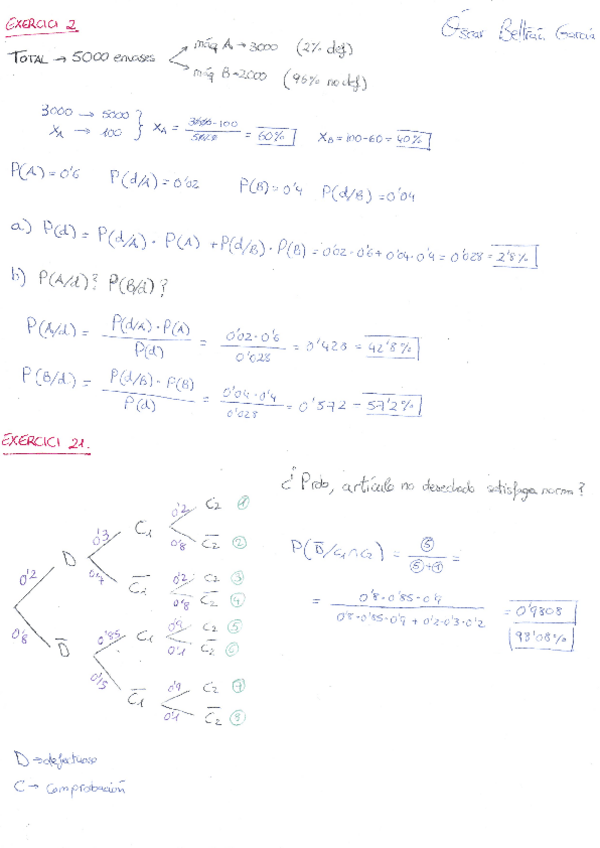 EXERCICI 2
Óscar Beltrán García
TOTAL → 5000 envases
máq A → 3000 (2% def)
máq B → 2000 (96% no def)
3000 → 5000
X_A → 100
X_A = 3000·100 / 5000 = 60%
X_B = 100-60 = 40%
P(A) = 0'6 P(d/A) = 0'02 P(B) = 0'4 P(d/B) = 0'04
a) P(d) = P(d/A) · P(A) + P(d/B) · P(B) = 0'02·0'6 + 0'04·0'4 = 0'028 = 2'8%
b) P(A/d)? P(B/d)?
P(A/d) = P(d/A)·P(A) / P(d) = 0'02·0'6 / 0'028 = 0'428 = 42'8%
P(B/d) = P(d/B)·P(B) / P(d) = 0'04·0'4 / 0'028 = 0'572 = 57'2%
EXERCICI 21.
¿Prob, artículo no desechado satisfaga norma?
0'2 D 0'3 C1 0'2 C2 1
0'8 C̅2 2
0'7 C̅1 0'2 C2 3
0'8 C̅2 4
0'8 D̅ 0'85 C1 0'9 C2 5
0'1 C̅2 6
0'15 C̅1 0'9 C2 7
0'1 C̅2 8
P(D̅/C1∩C2) = 5 / 5+1 =
= 0'8·0'85·0'9 / 0'8·0'85·0'9 + 0'2·0'3·0'2 = 0'9808
98'08%
D → defectuoso
C → comprobación